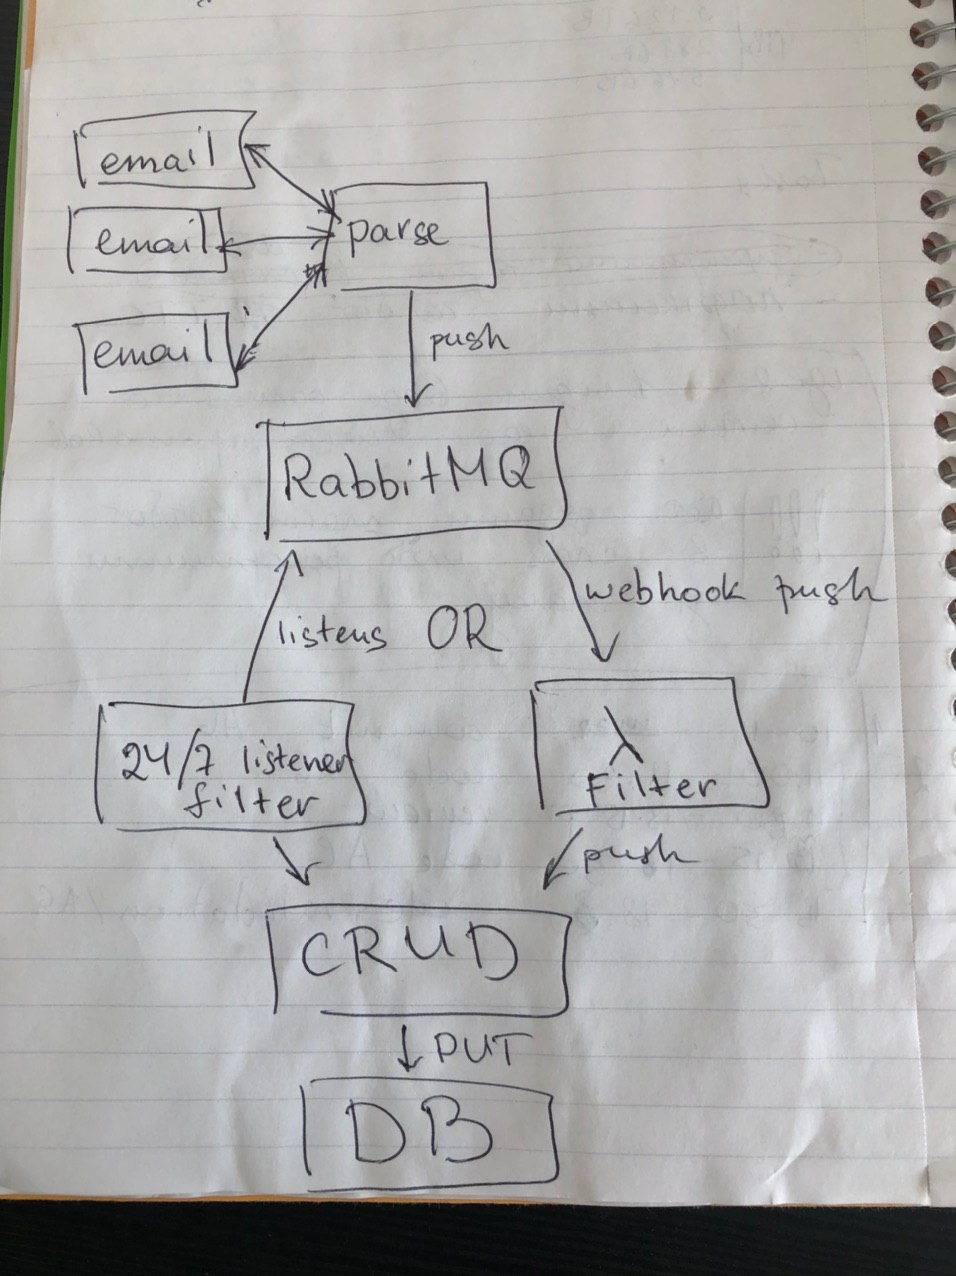 email
email
parse
email
push
RabbitMQ
webhook push
listens OR
24/7 listener
filter
λ
Filter
push
CRUD
PUT
DB